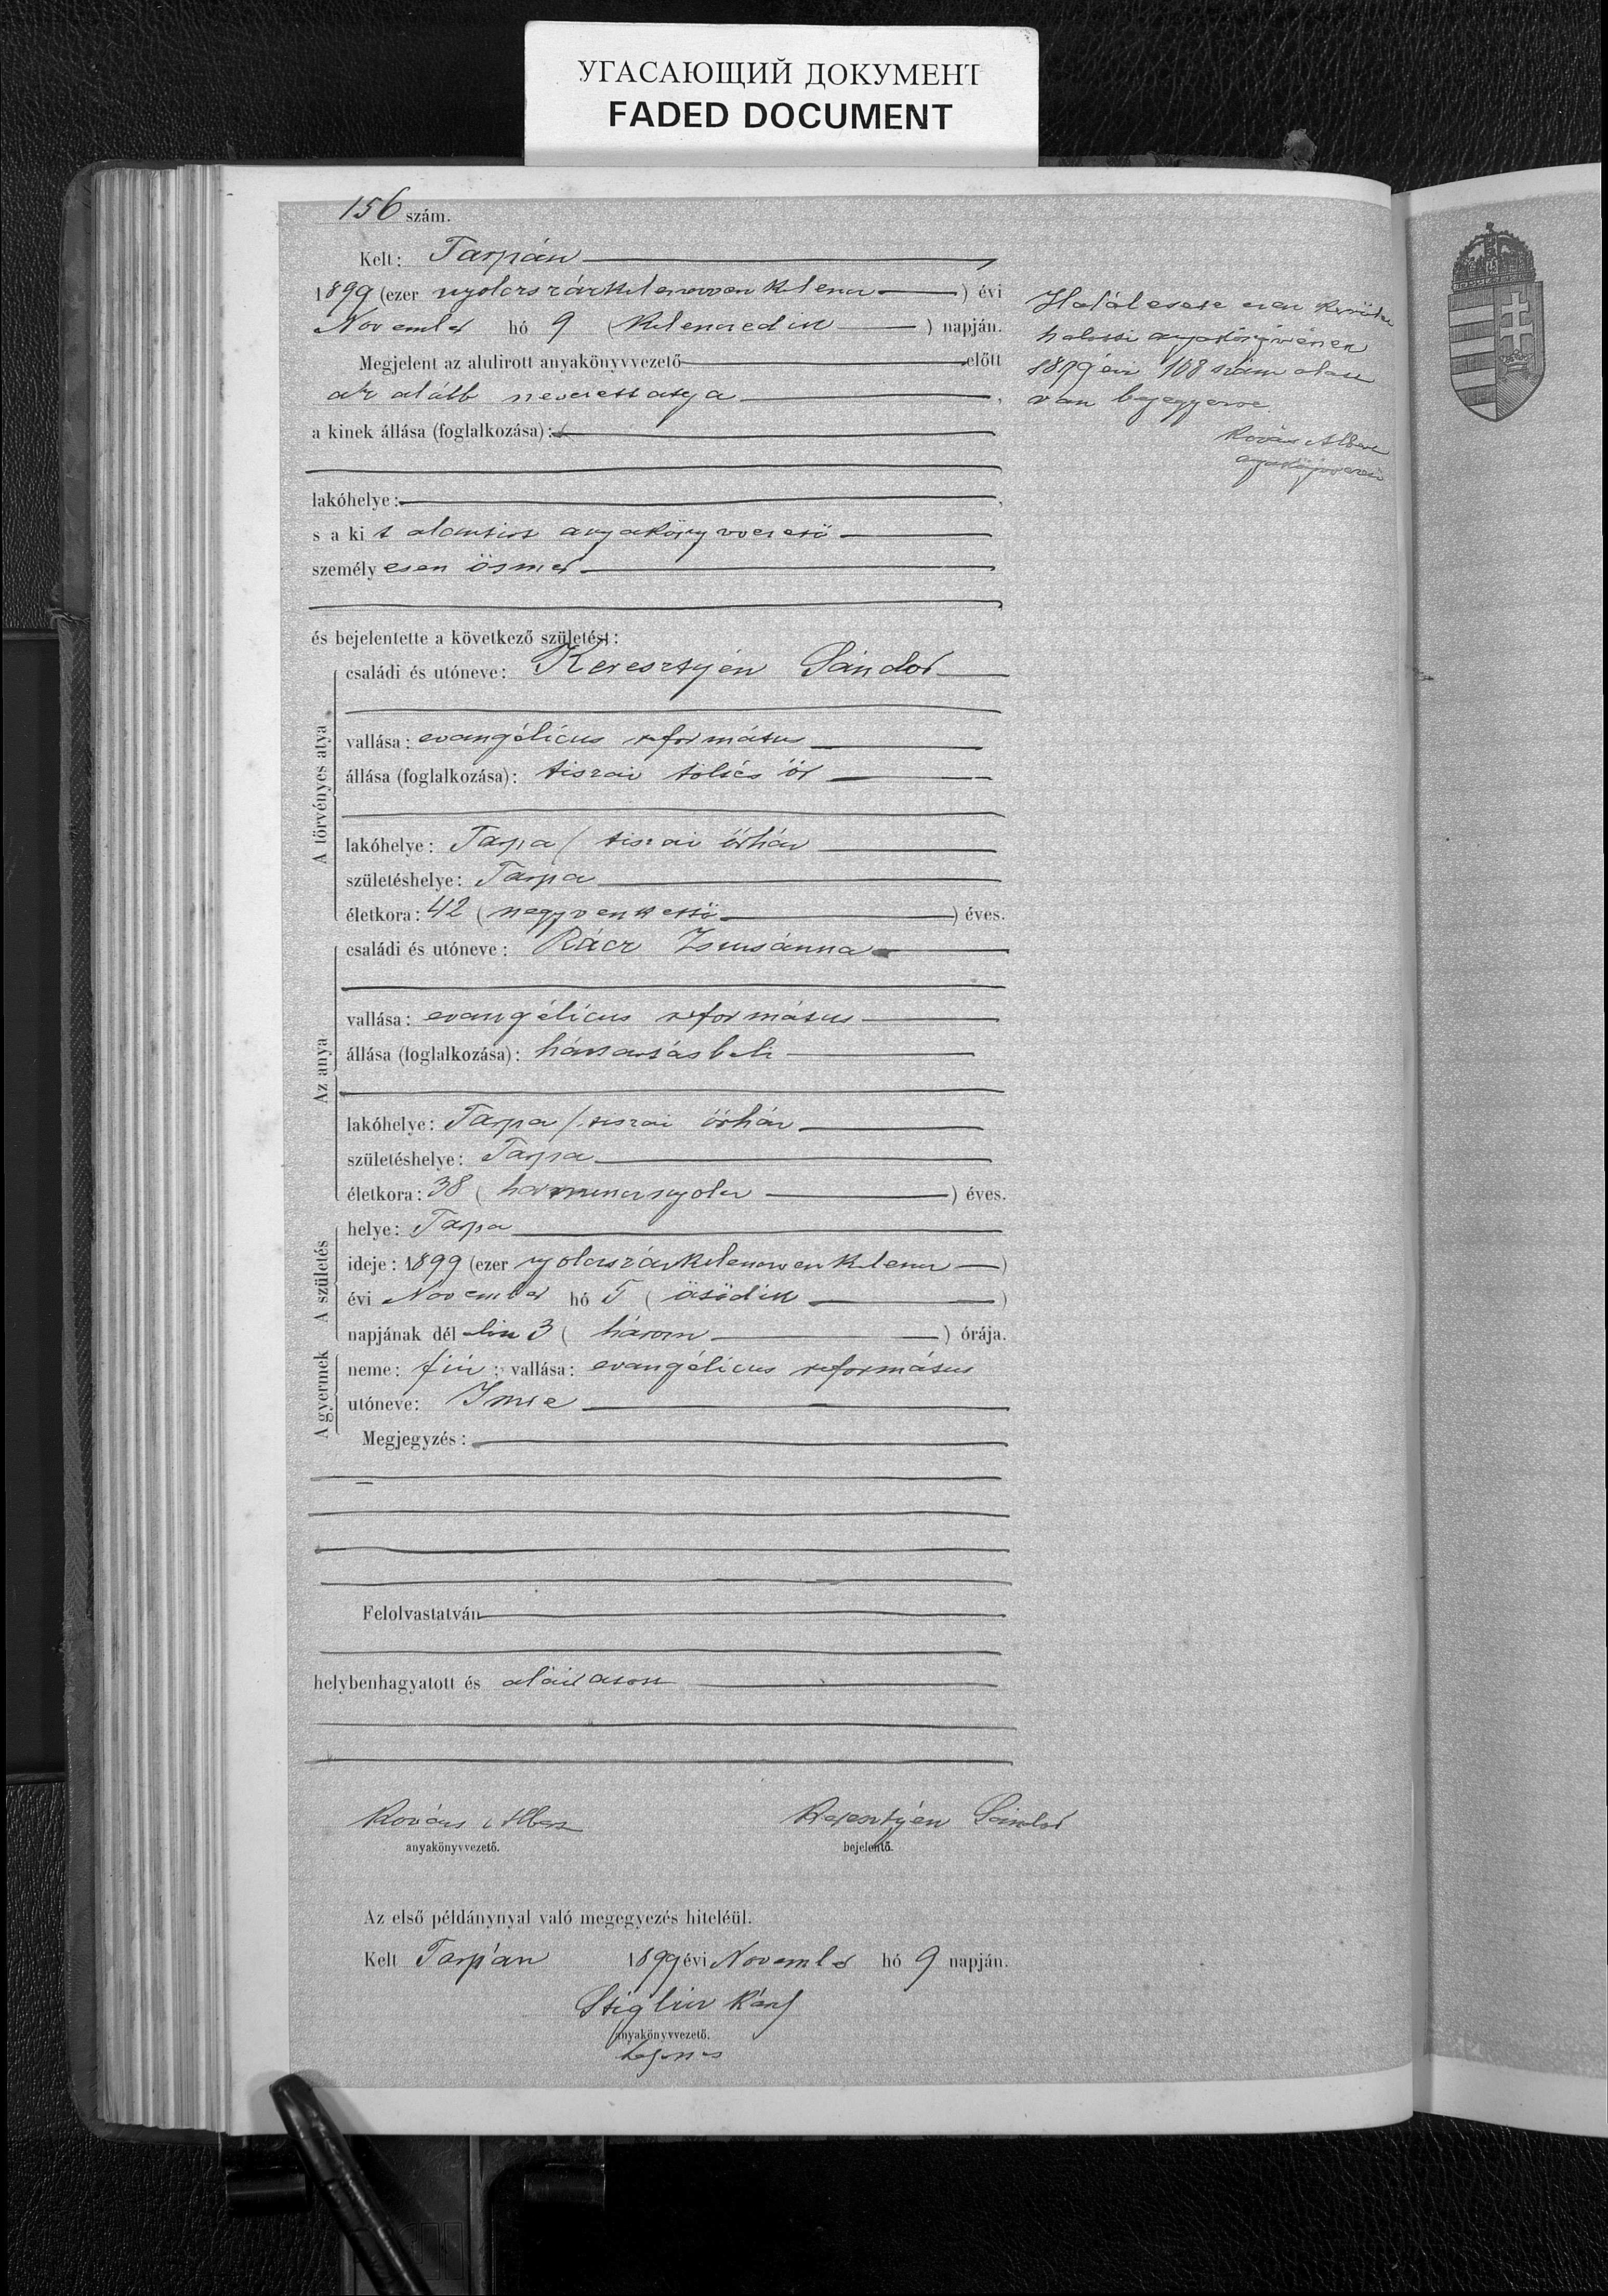 УГАСАЮЩИЙ ДОКУМЕНТ
FADED DOCUMENT
156 szám.
Kelt: Tarpán
1899 (ezer nyolczszázkilenczvenkilencz) évi
November hó 9 (kilenczedik) napján.
Megjelent az alulirott anyakönyvvezető előtt
az alább nevezett atya,
a kinek állása (foglalkozása):
lakóhelye:
s a kit alantirt anyakönyvvezető
személyesen ösmer
és bejelentette a következő születést:
A törvényes atya
családi és utóneve: Keresztyén Sándor
vallása: evangélicus református
állása (foglalkozása): tiszai töltés őr
lakóhelye: Tarpa / tiszai őrház
születéshelye: Tarpa
életkora: 42 (negyvenkettő) éves.
Az anya
családi és utóneve: Rácz Zsuzsánna
vallása: evangélicus református
állása (foglalkozása): háztartásbeli
lakóhelye: Tarpa / tiszai őrház
születéshelye: Tarpa
életkora: 38 (harmincznyolcz) éves.
A születés
helye: Tarpa
ideje: 1899 (ezer nyolczszázkilenczvenkilencz)
évi November hó 5 (ötödik)
napjának dél 3 (három) órája.
A gyermek
neme: fiú; vallása: evangélicus református
utóneve: Imre
Megjegyzés:
Felolvastatván
helybenhagyatott és aláiratott
Kovács Albert
anyakönyvvezető.
Keresztyén Sándor
bejelentő.
Az első példánynyal való megegyezés hiteléül.
Kelt Tarpán 1899 évi November hó 9 napján.
Károly
anyakönyvvezető.
Halálesete ezen kerület
halotti anyakönyvének
1899 évi 108 szám alatt
van bejegyezve.
Kovács Albert
anyakönyvvezető